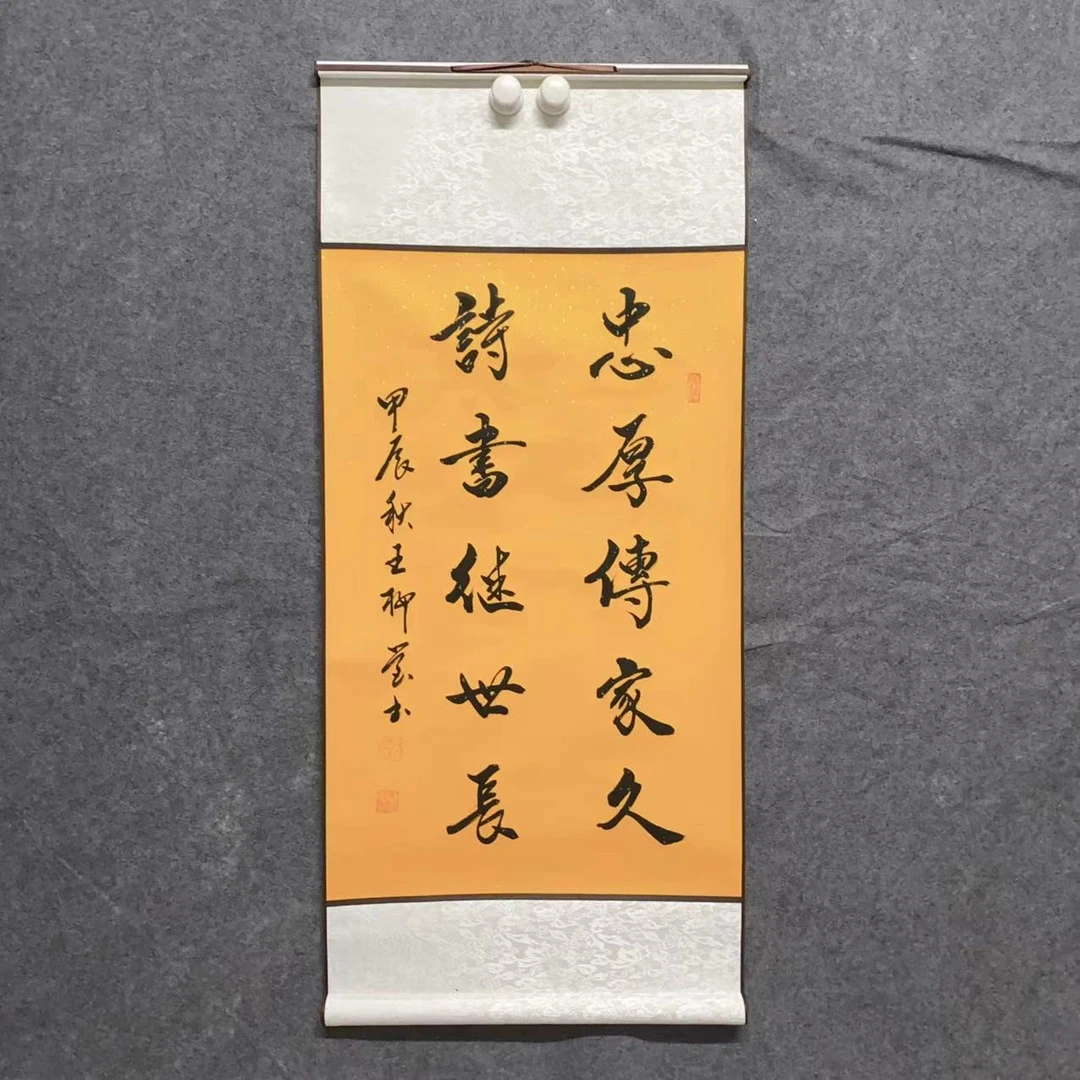 忠厚傳家久
詩書继世長
甲辰秋王柳莹书